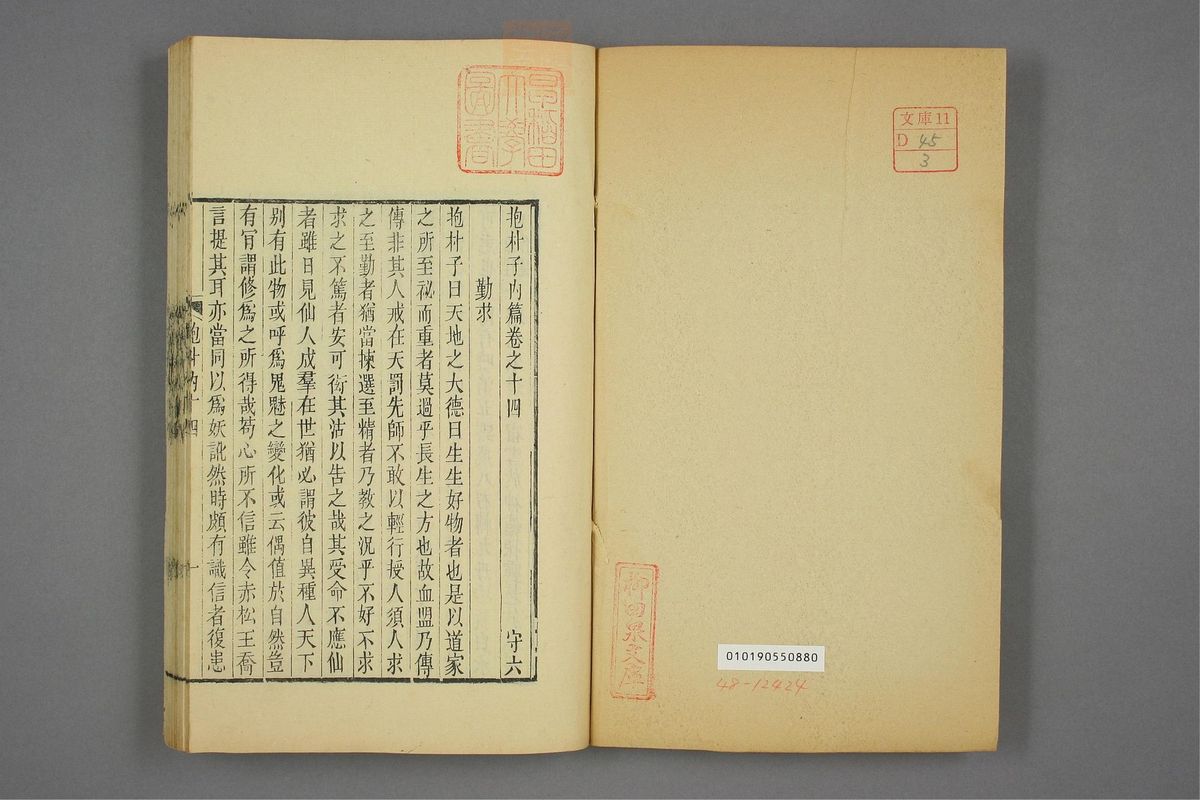 文庫11
D 45
3
柳田泉文庫
010190550880
48-12424
早稲田
大學
圖書
抱朴子內篇卷之十四 守六
勤求
抱朴子曰天地之大德曰生生好物者也是以道家
之所至祕而重者莫過乎長生之方也故血盟乃傳
傳非其人戒在天罰先師不敢以輕行授人須人求
之至勤者猶當揀選至精者乃教之況乎不好不求
求之不篤者安可衒其沽以告之哉其受命不應仙
者雖日見仙人成羣在世猶必謂彼自異種人天下
别有此物或呼爲鬼魅之變化或云偶值於自然豈
有肎謂修爲之所得哉苟心所不信雖令赤松王喬
言提其耳亦當同以爲妖訛然時頗有識信者復患
抱朴內十四 一